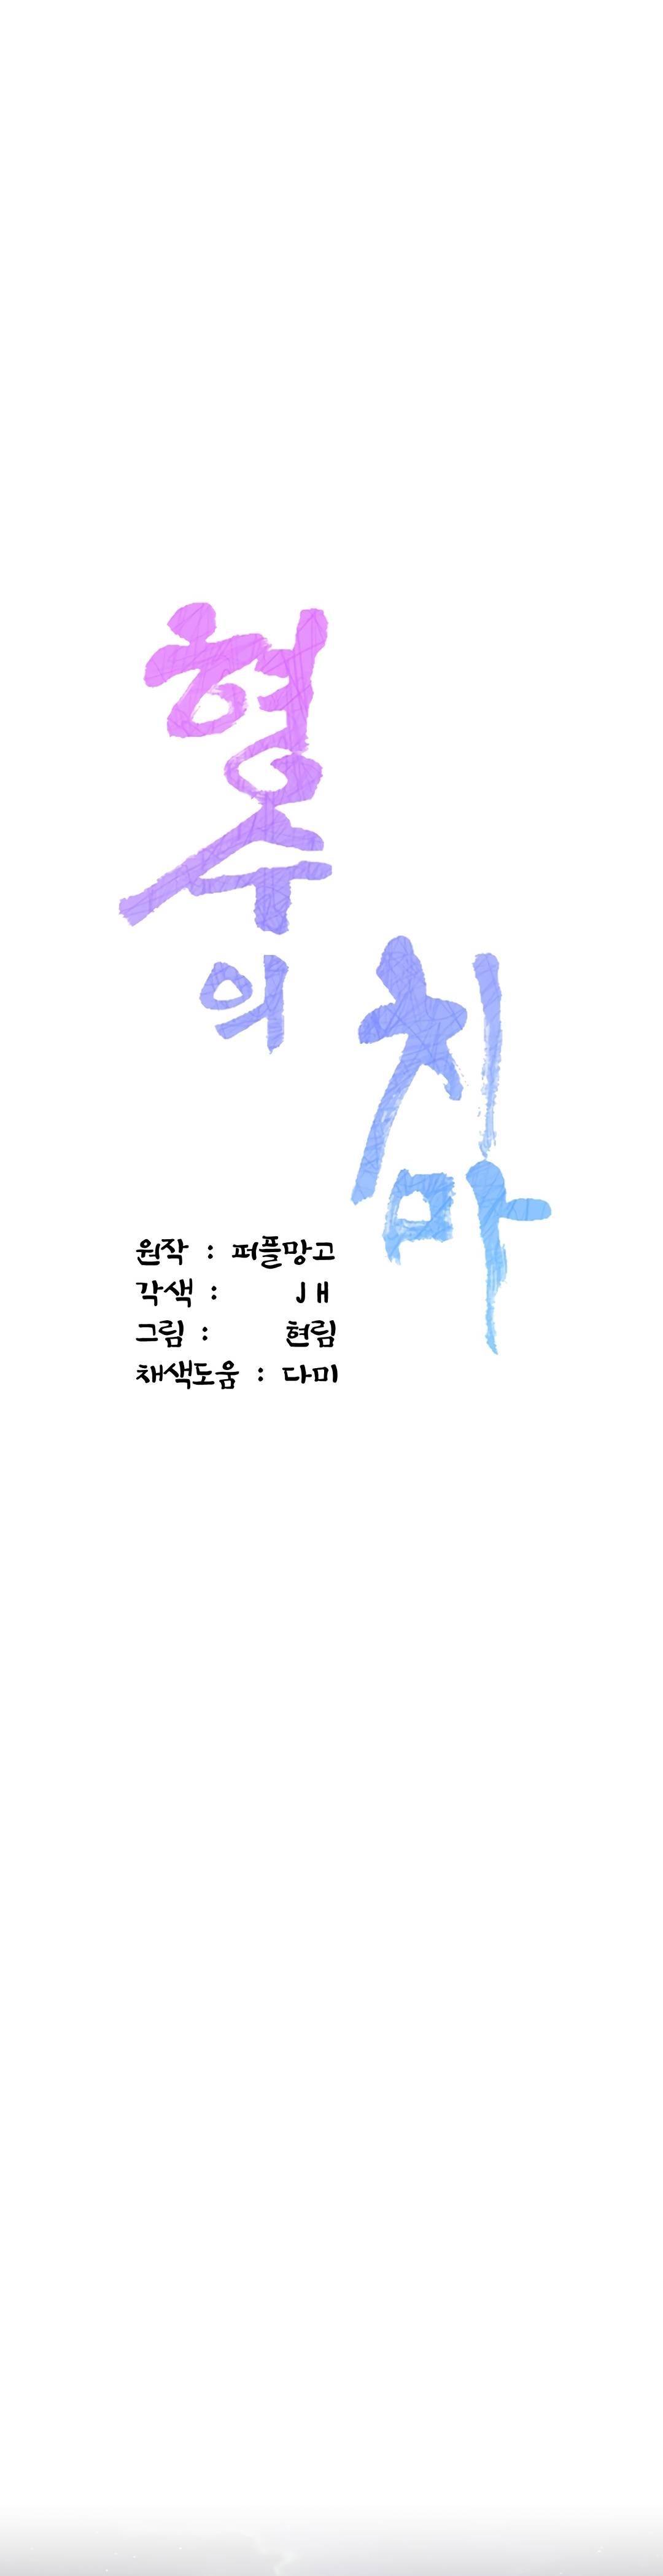 형수
의
치마
원작 : 퍼플망고
각색 : JH
그림 : 현림
채색도움 : 다미